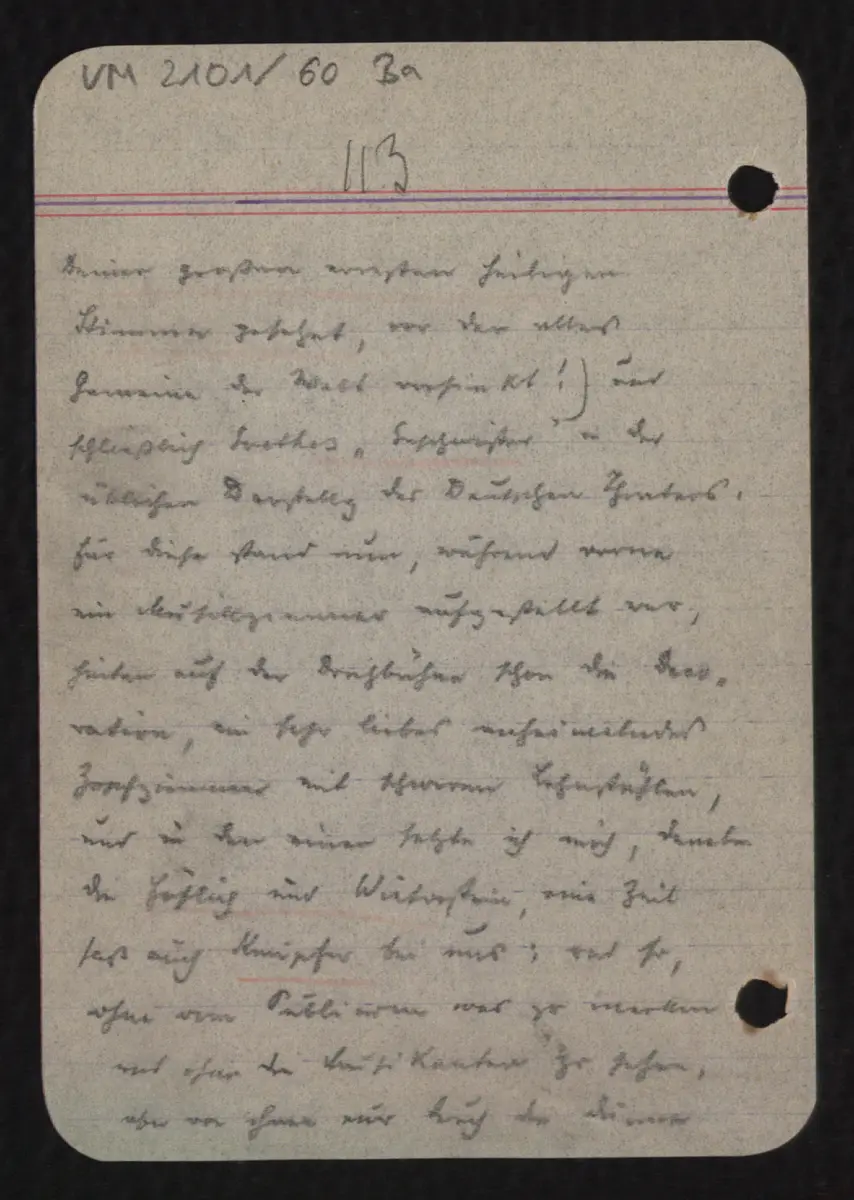 VM 2101/60 Ba
113
Deiner großen ernsten heiligen
Stimme gesehnt, vor der alles
Gemeine der Welt versinkt!) und
schließlich Goethes „Geschwister" in der
üblichen Darstellg des Deutschen Theaters.
Für diese stand nun, während vorne
ein Musikzimmer aufgestellt war,
hinten auf der Drehbühne schon die Deco-
ration, ein sehr liebes anheimelndes
zimmer mit schweren Lehnstühlen,
und in den einen setzte ich mich, daneben
die Höflich und Winterstein, eine Zeit
saß auch bei uns; und so,
ohne vom Publicum was zu merken
und ohne die Musikanten zu sehen,
aber von ihnen nur durch die dünne